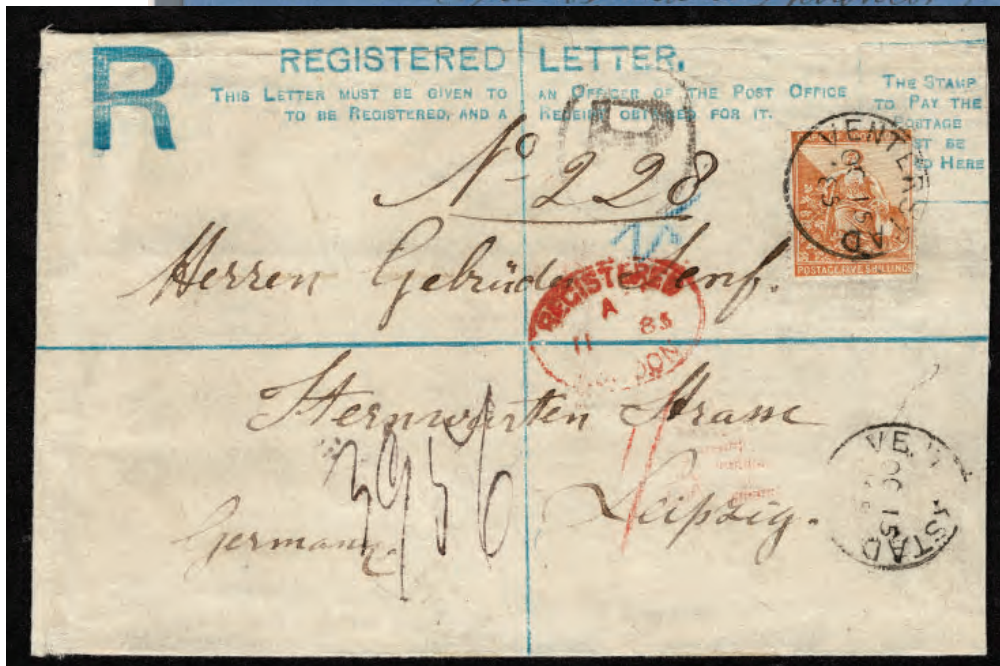 R
REGISTERED LETTER.
THIS LETTER MUST BE GIVEN TO AN OFFICER OF THE POST OFFICE
TO BE REGISTERED, AND A RECEIPT OBTAINED FOR IT.
THE STAMP
TO PAY THE
POSTAGE
MUST BE
HERE
R
No 228
VENTERSTAD
OC 15
83
POSTAGE FIVE SHILLINGS
Herren Gebrüder Senf.
REGISTERED
A
11 83
LONDON
Sternwarten Strasse
3956
Leipzig.
Germany.
VE
STAD
OC 15